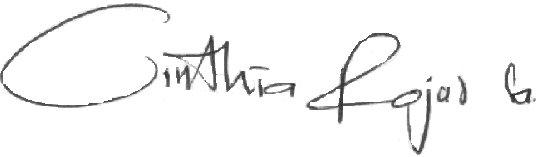 Cinthia Rojas